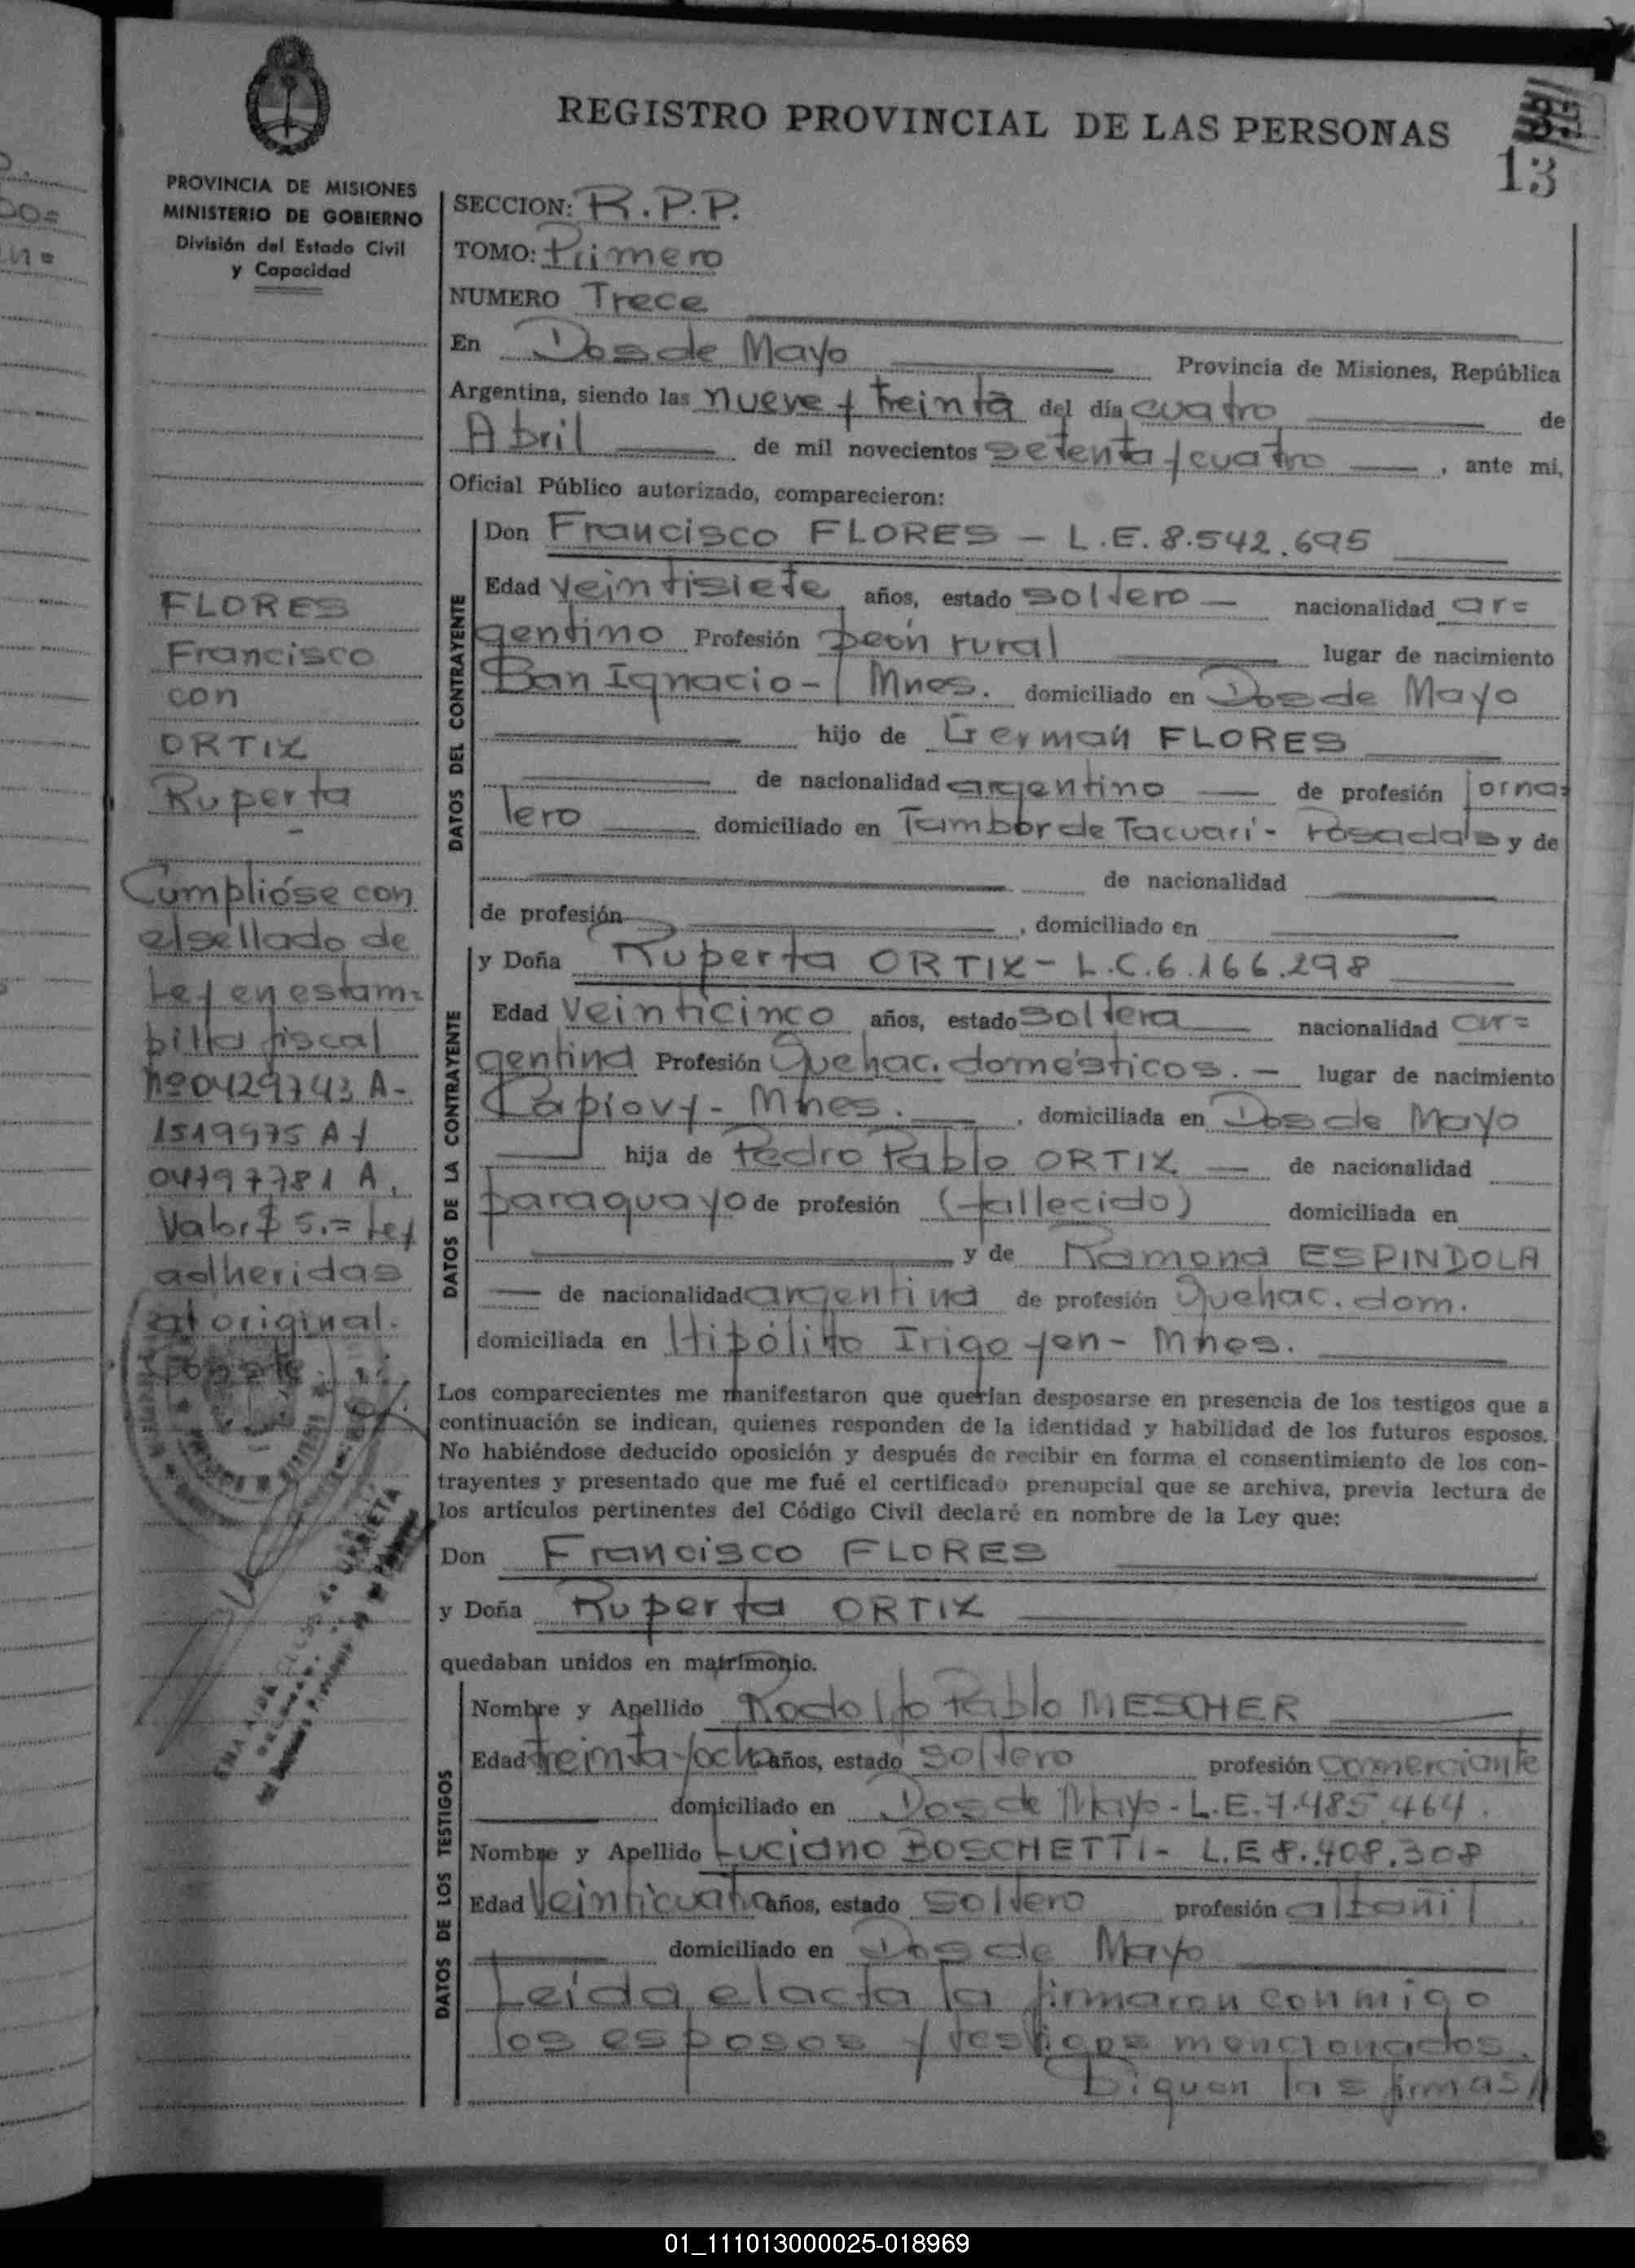 REGISTRO PROVINCIAL DE LAS PERSONAS
13
PROVINCIA DE MISIONES
MINISTERIO DE GOBIERNO
División del Estado Civil
y Capacidad
SECCION: R.P.P.
TOMO: Primero
NUMERO Trece
En Dos de Mayo Provincia de Misiones, República
Argentina, siendo las nueve y treinta del día cuatro de
Abril de mil novecientos setenta y cuatro, ante mi,
Oficial Público autorizado, comparecieron:
DATOS DEL CONTRAYENTE
Don Francisco FLORES - L.E. 8.542.695
Edad veintisiete años, estado soltero - nacionalidad ar=
gentino Profesión peón rural lugar de nacimiento
San Ignacio - Mnes. domiciliado en Dos de Mayo
hijo de Germán FLORES
de nacionalidad argentino de profesión jorna=
lero domiciliado en Tambor de Tacuarí - Posadas y de
de nacionalidad
de profesión, domiciliado en
DATOS DE LA CONTRAYENTE
y Doña Ruperta ORTIZ - L.C. 6.166.298
Edad Veinticinco años, estado soltera nacionalidad ar=
gentina Profesión Quehac. domésticos. - lugar de nacimiento
Capiovy - Mnes., domiciliada en Dos de Mayo
hija de Pedro Pablo ORTIZ de nacionalidad
paraguayo de profesión (fallecido) domiciliada en
y de Ramona ESPINDOLA
de nacionalidad argentina de profesión Quehac. dom.
domiciliada en Hipólito Irigoyen - Mnes.
Los comparecientes me manifestaron que querían desposarse en presencia de los testigos que a
continuación se indican, quienes responden de la identidad y habilidad de los futuros esposos.
No habiéndose deducido oposición y después de recibir en forma el consentimiento de los con-
trayentes y presentado que me fué el certificado prenupcial que se archiva, previa lectura de
los artículos pertinentes del Código Civil declaré en nombre de la Ley que:
Don Francisco FLORES
y Doña Ruperta ORTIZ
quedaban unidos en matrimonio.
DATOS DE LOS TESTIGOS
Nombre y Apellido Rodolfo Pablo MESCHER
Edad treinta y ocho años, estado soltero profesión comerciante
domiciliado en Dos de Mayo - L.E. 7.485.464.
Nombre y Apellido Luciano BOSCHETTI - L.E 8.408.308
Edad Veinticuatro años, estado soltero profesión albañil
domiciliado en Dos de Mayo
Leída el acta la firmaron conmigo
los esposos y testigos mencionados.
Siguen las firmas//
FLORES
Francisco
con
ORTIZ
Ruperta
Cumplióse con
el sellado de
Ley en estam=
pilla fiscal
nº 0429743 A-
1519975 A y
04797781 A,
Valor $ 5.= Ley
adheridas
al original.
Conste
01_111013000025-018969